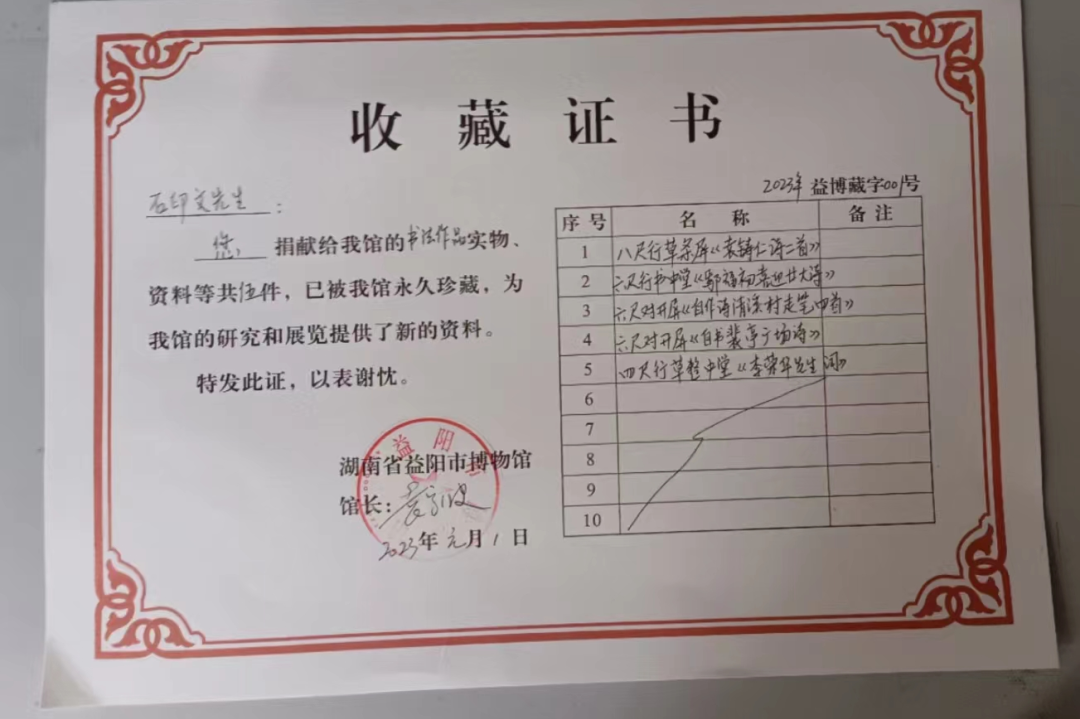 收藏证书
2023年 益博藏字001号
石印文先生：
您 捐献给我馆的书法作品实物、
资料等共伍件，已被我馆永久珍藏，为
我馆的研究和展览提供了新的资料。
特发此证，以表谢忱。
湖南省益阳市博物馆
馆长：
2023年元月1日
益阳市
序号 名称 备注
1 八尺行草条屏《袁铸仁诗二首》
2 六尺行书中堂《郭福初喜迎廿大诗》
3 六尺对开屏《自作诗清溪村走笔四首》
4 六尺对开屏《自书裴亭广场诗》
5 四尺行草整中堂《李荣华先生词》
6
7
8
9
10